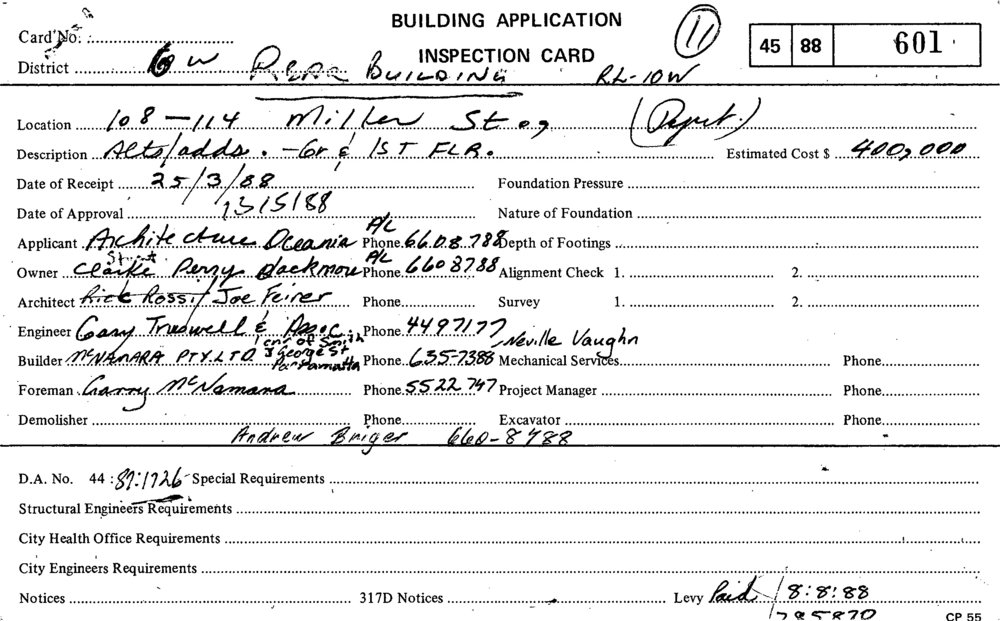 BUILDING APPLICATION
INSPECTION CARD
11
45 88 601
Card No.
District 6W REAR BUILDING RL-10W
Location 108-114 Miller St (Pyrmt.)
Description Alts/adds. - Gr & 1ST FLR. Estimated Cost $ 400,000
Date of Receipt 25/3/88 Foundation Pressure
Date of Approval 13/5/88 Nature of Foundation
Applicant Architecture Oceania P/L Phone 660 8788 Depth of Footings
Owner Clarke Perry Blackmore P/L Phone 660 8788 Alignment Check 1. 2.
Architect Rick Rossi/Joe Feirer Phone Survey 1. 2.
Engineer Gary Truswell & Assoc. Phone 4497177
Neville Vaughn
Builder McNAMARA PTY.LTD cnr of Smith & George St Parramatta Phone 635-7388 Mechanical Services Phone
Foreman Garry McNamara Phone 5522 747 Project Manager Phone
Demolisher Phone Excavator Phone
Andrew Briger 660-8788
D.A. No. 44 : 87:1726 Special Requirements
Structural Engineers Requirements
City Health Office Requirements
City Engineers Requirements
Notices 317D Notices Levy Paid 8:8:88
785870
CP 55